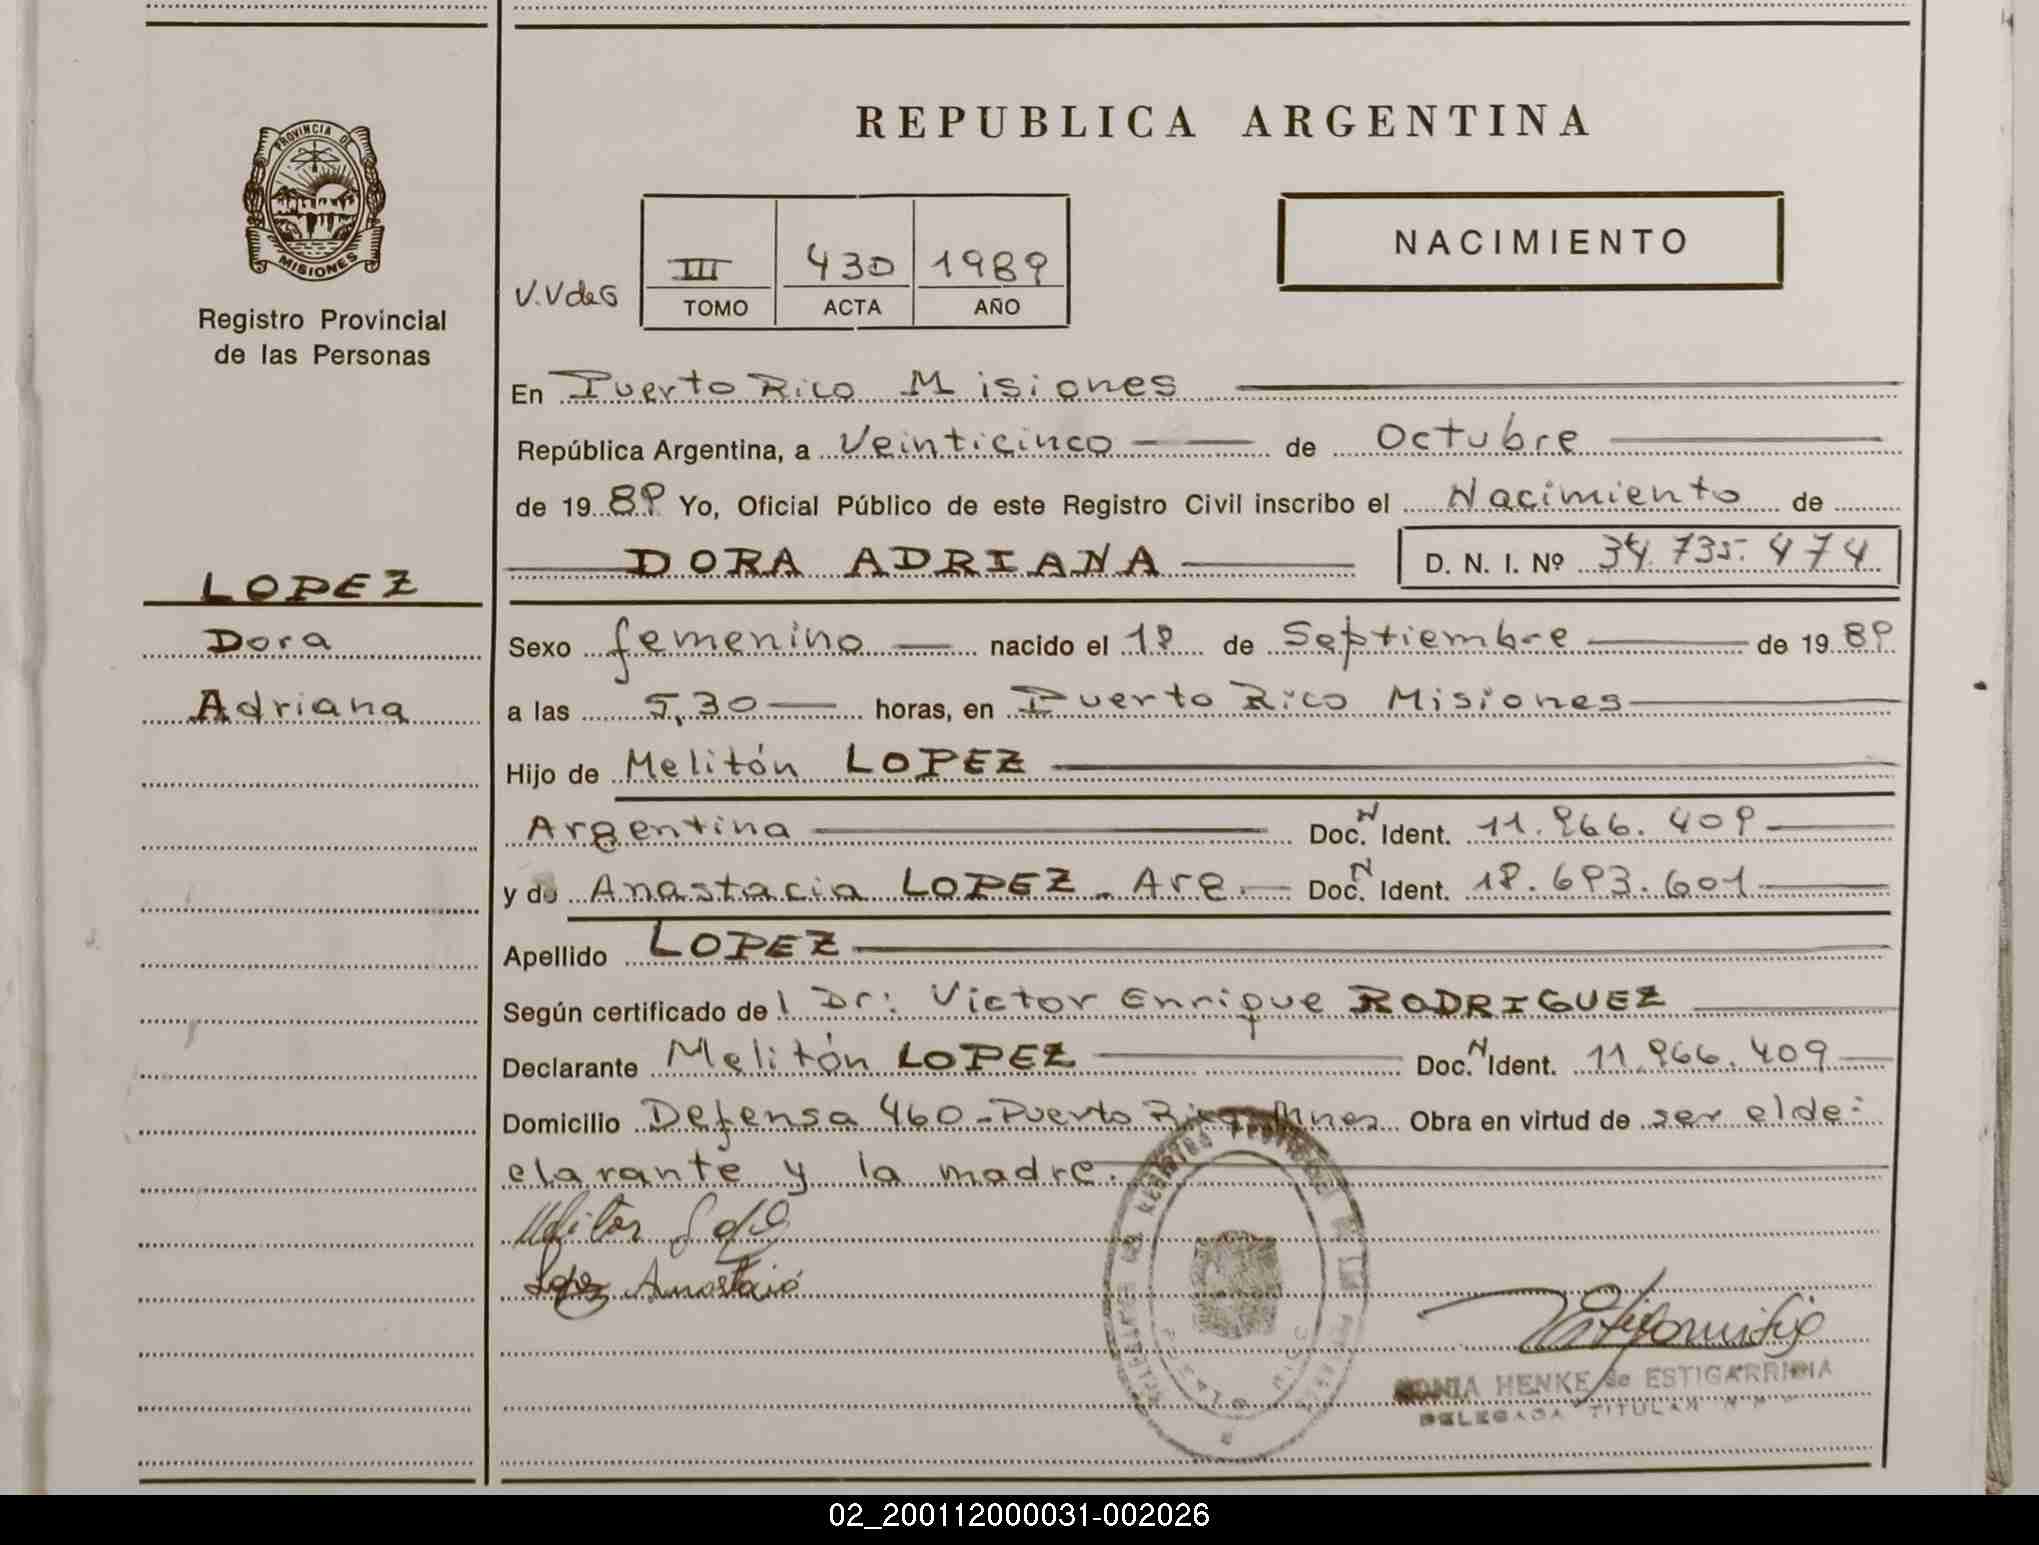 PROVINCIA DE
MISIONES
Registro Provincial
de las Personas
REPUBLICA ARGENTINA
NACIMIENTO
V.V de G
III 430 1989
TOMO ACTA AÑO
En Puerto Rico Misiones
República Argentina, a Veinticinco de Octubre
de 1989 Yo, Oficial Público de este Registro Civil inscribo el Nacimiento de
DORA ADRIANA D. N. I. Nº 34.735.474
LOPEZ
Dora
Adriana
Sexo femenino nacido el 18 de Septiembre de 1989
a las 5,30 horas, en Puerto Rico Misiones
Hijo de Melitón LOPEZ
Argentina Doc. N Ident. 11.966.409
y de Anastacia LOPEZ - Arg. Doc. N Ident. 18.693.601
Apellido LOPEZ
Según certificado del Dr: Victor Enrique RODRIGUEZ
Declarante Melitón LOPEZ Doc. N Ident. 11.966.409
Domicilio Defensa 460 - Puerto Rico Mnes Obra en virtud de ser el de-
clarante y la madre.
Lopez Anastacia
SONIA HENKE de ESTIGARRIBIA
DELEGADA TITULAR
02_200112000031-002026